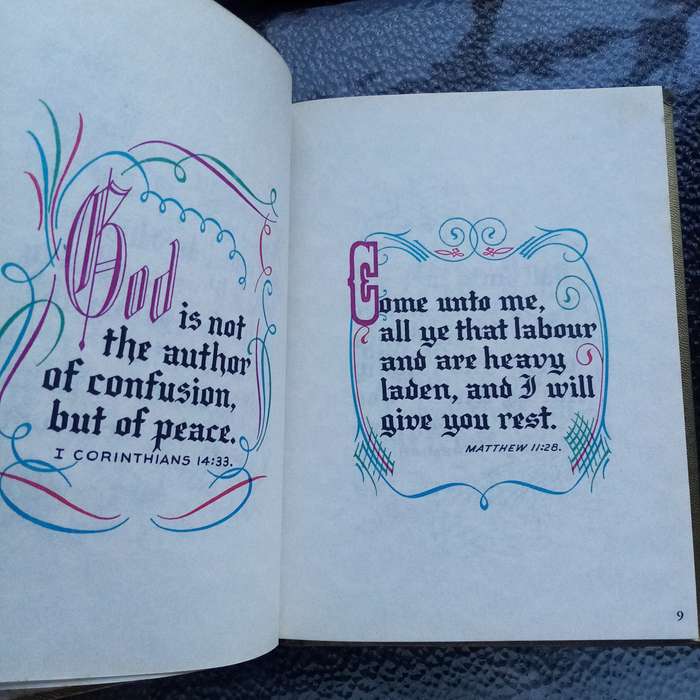 God
is not
the author
of confusion,
but of peace.
I CORINTHIANS 14:33.
Come unto me,
all ye that labour
and are heavy
laden, and I will
give you rest.
MATTHEW 11:28.
9